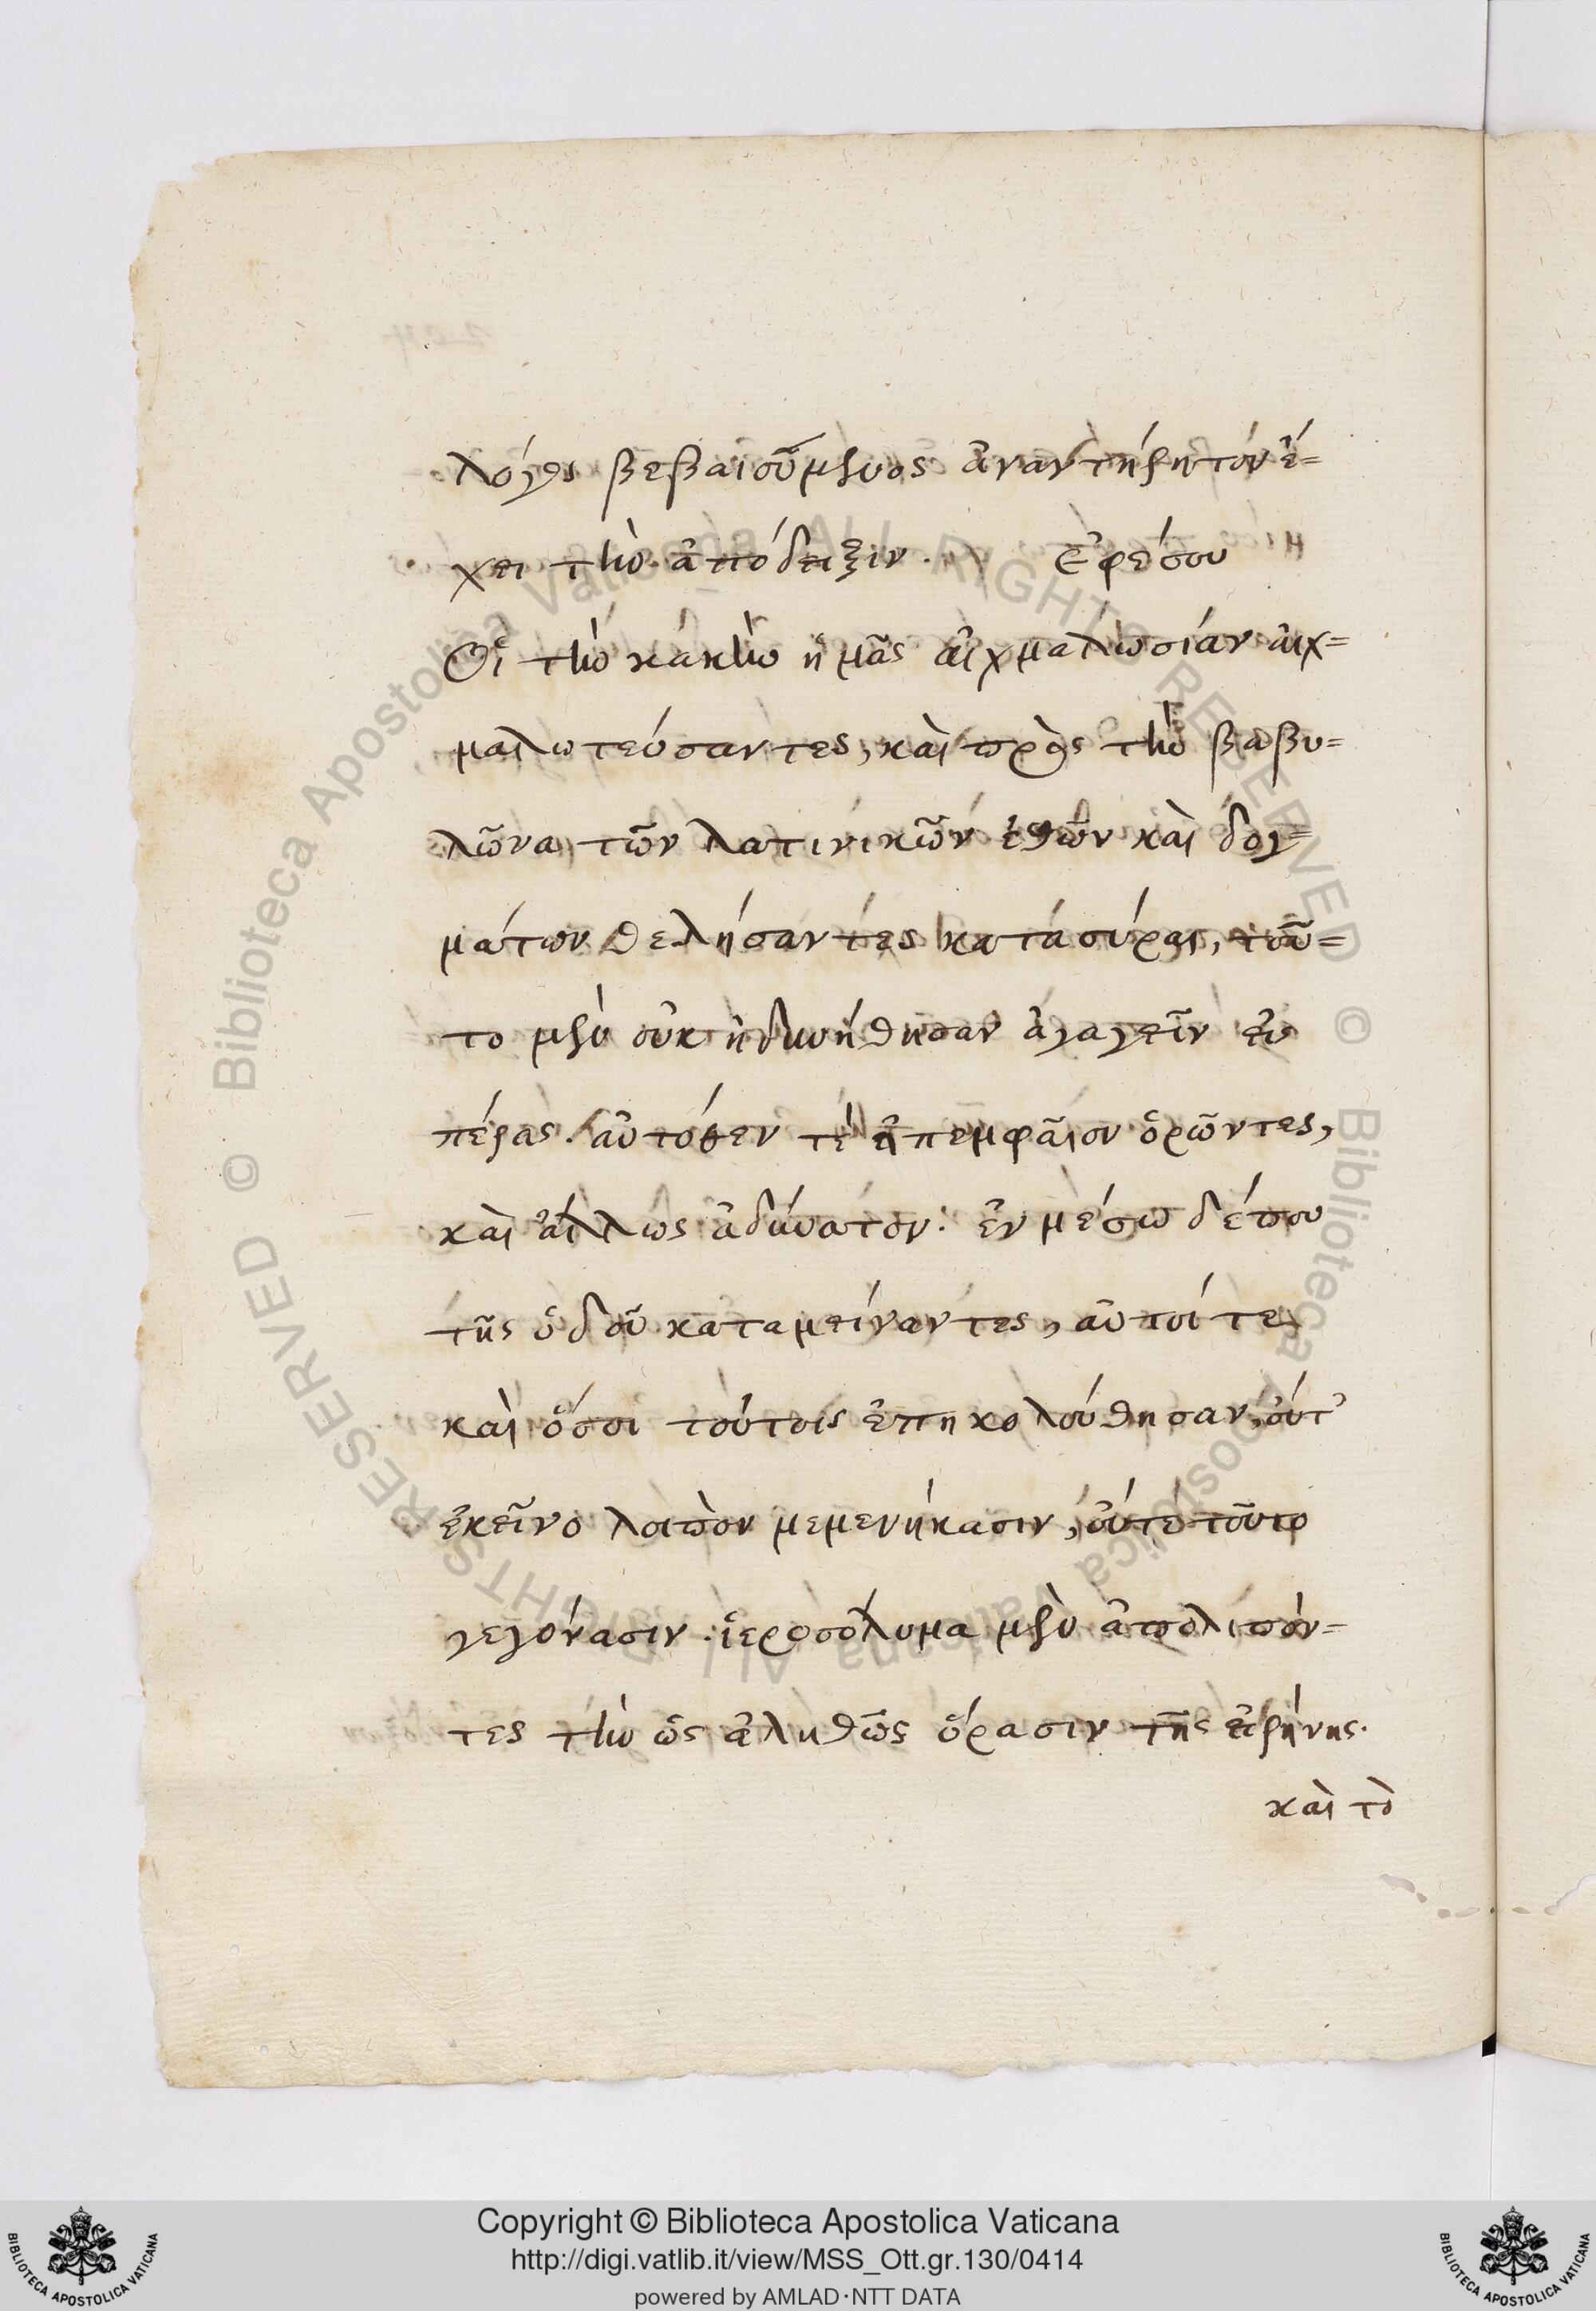 λόγοις βεβαιούμενος ἀναντήῤῥητον ἔ=
χει τὴν ἀπόδειξιν. Ἐφέσου
Οἱ τὴν κακὴν ἡμᾶς αἰχμαλωσίαν αἰχ=
μαλωτεύσαντες, καὶ πρὸς τὴν βαβυ=
λῶνα τῶν λατινικῶν ἐθῶν καὶ δογ=
μάτων θελήσαντες κατασύραι, τοῦ=
το μὲν οὐκ ἠδυνήθησαν ἀγαγεῖν εἰς
πέρας. αὐτόθεν τὲ ἀπεμφαῖον ὁρῶντες,
καὶ ἄλλως ἀδύνατον. ἐν μέσω δέ που
τῆς ὁδοῦ καταμείναντες, αὐτοί τε
καὶ ὅσοι τούτοις ἐπηκολούθησαν, οὔτ'
ἐκεῖνο λοιπὸν μεμενήκασιν, οὔτε τοῦτο
γεγόνασιν. ἱεροσόλυμα μὲν ἀπολιπόν=
τες τὴν ὡς ἀληθῶς ὅρασιν τῆς εἰρήνης.
καὶ τὸ
Copyright © Biblioteca Apostolica Vaticana
http://digi.vatlib.it/view/MSS_Ott.gr.130/0414
powered by AMLAD·NTT DATA
BIBLIOTECA APOSTOLICA VATICANA
BIBLIOTECA APOSTOLICA VATICANA
© Biblioteca Apostolica Vaticana ALL RIGHTS RESERVED © Biblioteca Apostolica Vaticana ALL RIGHTS RESERVED